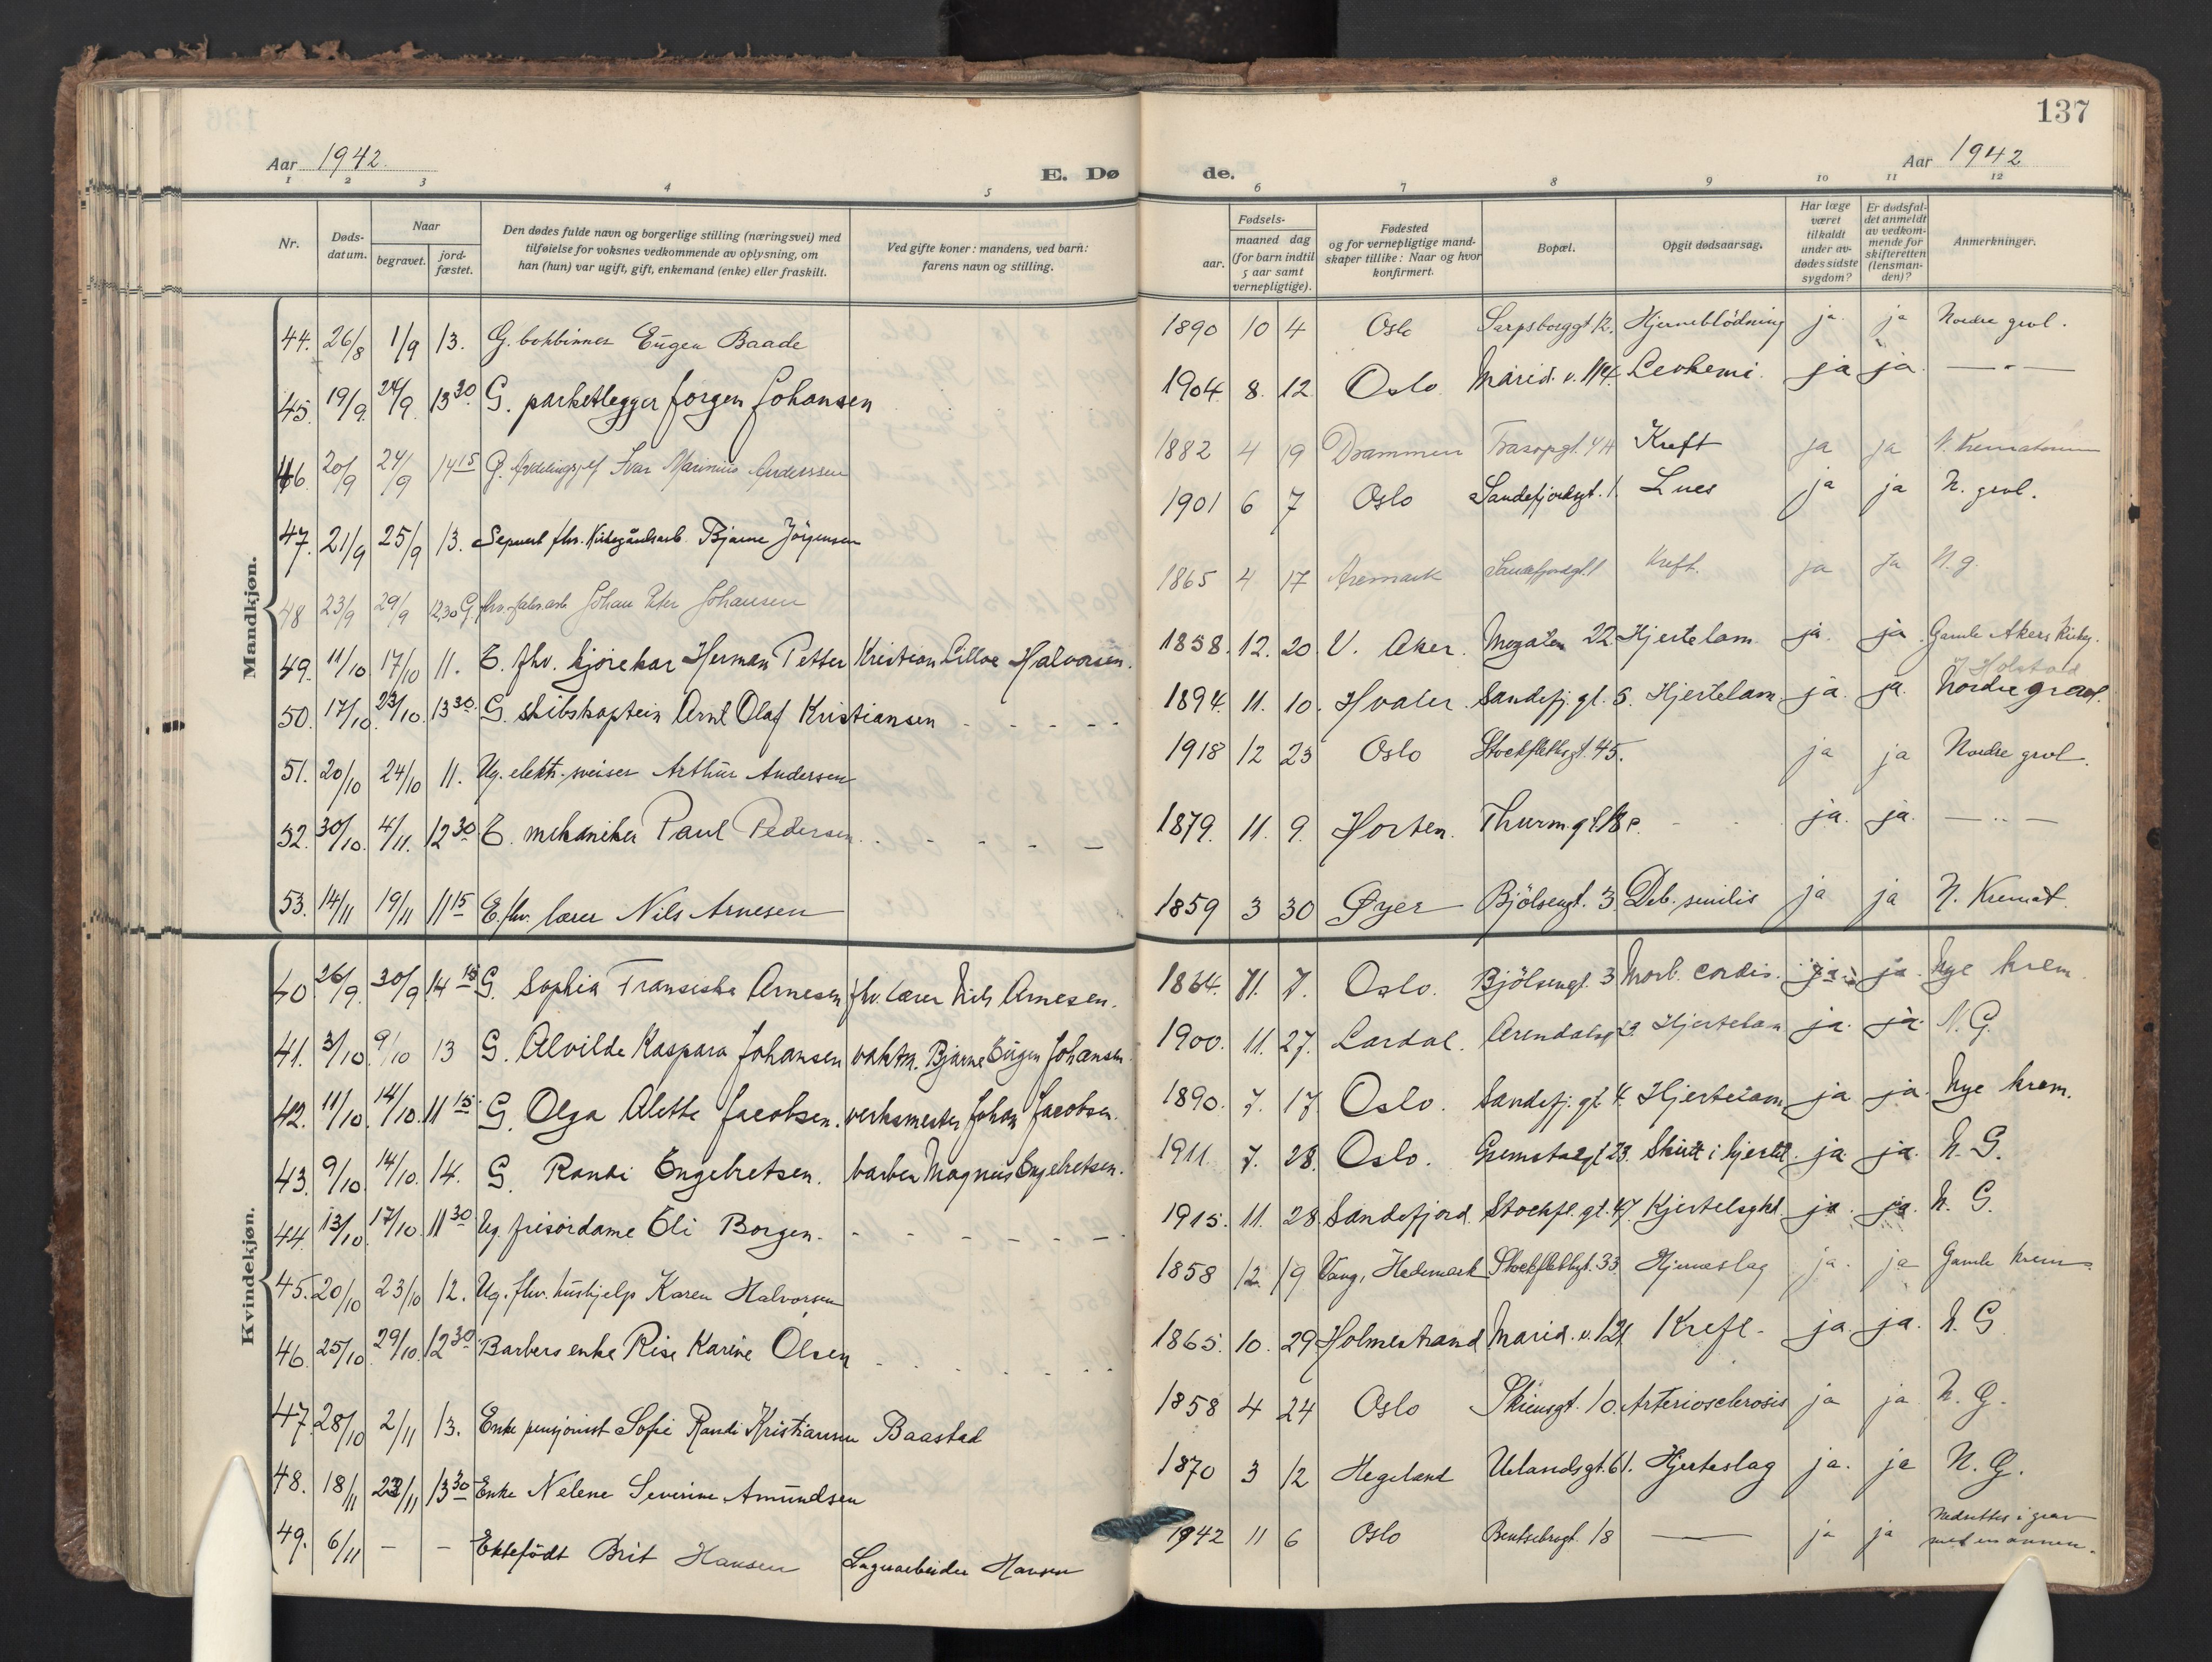 137
Aar 1942.
E. Dø
de.
Aar 1942
1 2 3 4 5 6 7 8 9 10 11 12
Nr.
Døds-datum.
Naar
begravet.
jord-fæstet.
Den dødes fulde navn og borgerlige stilling (næringsvei) med
tilføielse for voksnes vedkommende av oplysning, om
han (hun) var ugift, gift, enkemand (enke) eller fraskilt.
Ved gifte koner: mandens, ved barn:
farens navn og stilling.
Fødsels-
aar.
maaned dag
(for barn indtil
5 aar samt
vernepligtige).
Fødested
og for vernepligtige mand-
skaper tillike: Naar og hvor
konfirmert.
Bopæl.
Opgit dødsaarsag.
Har læge
været
tilkaldt
under av-
dødes sidste
sygdom?
Er dødsfal-
det anmeldt
av vedkom-
mende for
skifteretten
(lensman-
den)?
Anmerkninger.
Mandkjøn.
44. 26/8 1/9 13. G. bokbinner Eugen Baade 1890 10 4 Oslo Sarpsborggt. 12. Hjerneblødning ja ja Nordre gravl.
45. 19/9. 24/9. 13 30 G. parkettlegger Jørgen Johansen 1904. 8. 12. Oslo. Marid. v. Leukemi. ja ja. — " —
46. 20/9 24/9 14 15 G. Ivar Marinius Anderssen 1882 4 19 Drammen 44 Kreft ja ja N. Krematorium
47. 21/9 25/9 13. Separert fhv. Kirkegårdsarb. Bjarne Jörgensen 1901 6 7 Oslo Sandefjordgt. 1. Lues ja ja N. gravl.
48 23/9 29/9 12,30 G. fhv. fabr.arb. Johan Peter Johansen 1865 4 17 Aremark Sandefjordgt. 1 Kreft. ja ja N. g.
49. 11/10 17/10 11. E. fhv. kjørekar Herman Petter Kristian Lilloe Halvorsen. 1858. 12. 20. V. Aker. Mogaten 22. Hjertelam. ja. ja. Gamle Akers Kirkeg.
50. 17/10. 23/10. 13 30 G. skibskaptein Arnt Olaf Kristiansen 1894. 11. 10. Hvaler. Sandefj. gt. 5. Hjertelam. ja. ja. Nordre gravl.
51. 20/10 24/10 11. Ug. elektr. sveiser Arthur Andersen 1918 12 23 Oslo Stockflethsgt. 45. ja ja Nordre gravl.
52. 30/10. 4/11. 12 30 E. mekaniker Paul Pedersen. 1879. 11. 9. Horten. Thurm. gt. 18 c. ja. ja. — " —
53. 14/11 19/11 11 15 E. fhv. lærer Nils Arnesen 1859 3 30 Øyer Bjölsengt. 3. Deb. senilis ja ja N. Kremat.
Kvindekjøn.
40. 26/9. 30/9 14 15 G. Sophia Fransiska Arnesen fhv. lærer Nils Arnesen. 1864. 11. 7. Oslo. Bjölsengt. 3 Morb. cordis. ja. ja. Nye krem.
41. 3/10 9/10 13 G. Alvilde Kaspara Johansen vaktm. Bjarne Eugen Johansen. 1900. 11. 27. Lardal. Arendalsgt. Hjertelam ja. ja. N. G.
42. 11/10. 14/10. 11 15. G. Olga Alette Jacobsen. verksmester Johan Jacobsen. 1890. 7. 17. Oslo. Sandefj. gt. 4. Hjertelam ja ja. Nye krem.
43. 9/10. 14/10. 14. G. Randi Engebretsen. barber Magnus Engebretsen. 1911. 7. 28. Oslo. Grimstadgt 23. Skudt i hjertet. ja ja. N. G.
44. 13/10. 17/10. 11 30 Ug. frisørdame Eli Borgen. 1915. 11. 28. Sandefjord. Stockfl. gt. 47. Kjertelsykd. ja. ja. N. G.
45. 20/10 23/10 12. Ug. fhv. hushjelp Karen Halvorsen 1858 12 19 Vang, Hedemark Stockflethsgt. 33 Hjerneslag ja. ja Gamle krem.
46. 25/10 29/10. 12 30 Barbers enke Rise Karine Olsen 1865. 10. 29. Holmestrand Marid. v. 121 Kreft. ja. ja. N. G
47. 28/10 2/11 13. Enke pensjonist Sofie Randi Kristiansen Baastad 1858 4 24 Oslo Skiensgt. 10. Arteriosclerosis ja ja. N. G.
48. 18/11 23/11 13 30 Enke Nelene Severine Amundsen 1870 3 12 Hegeland Uelandsgt. 61. Hjerteslag ja. ja N. G.
49. 6/11 — — Ektefödt Brit Hansen Lagerarbeider Hansen 1942 11 6 Oslo Bentsebrugt. 18 — ja ja Nedsettes i grav
med en annen.